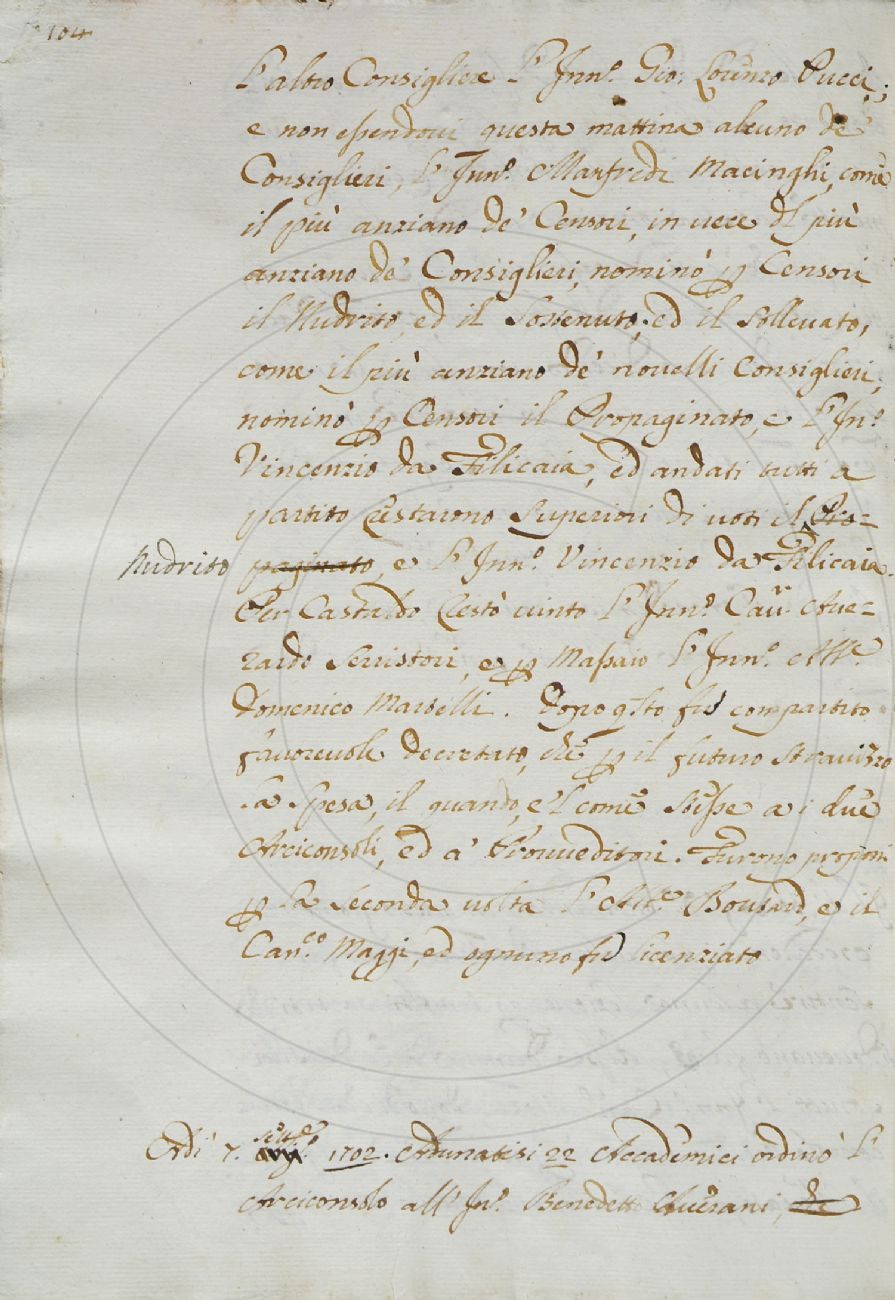 104
l'altro Consigliere l'Inn.º Gio: Lorenzo Pucci;
e non essendovi questa mattina alcuno de'
Consiglieri, l'Inn.º Manfredi Macinghi, come
il più anziano de' Censori, in vece dl più
anziano de' Consiglieri, nominò p Censori
il Nudrito, ed il Sostenuto, ed il Sollevato,
come il più anziano de' novelli Consiglieri,
nominò p Censori il Propaginato, e l'In.º
Vincenzio da Filicaia, ed andati tutti a
partito Restarono Superiori di voti il Pro=
Nudrito paginato, e l'Inn.º Vincenzio da Filicaia.
Per Castaldo Restò vinto l'Inn.º Cav. Ave=
rardo Serristori, e p Massaio l'Inn.º
Domenico Martelli. Dopo q.sto fù con partito
favorevole decretato, che p il futuro Stravizzo
la Spesa, il quando, e 'l come stesse a i due
Arciconsoli, ed a' Provveditori. Furono proposti
p la Seconda volta l'Ab.e, e il
Can.co Maggi, ed ognuno fù licenziato
Adì 7. 7bre 1702. Adunatisi 22 Accademici ordinò l'
Arciconsolo all'In.º Benedetto Averani,